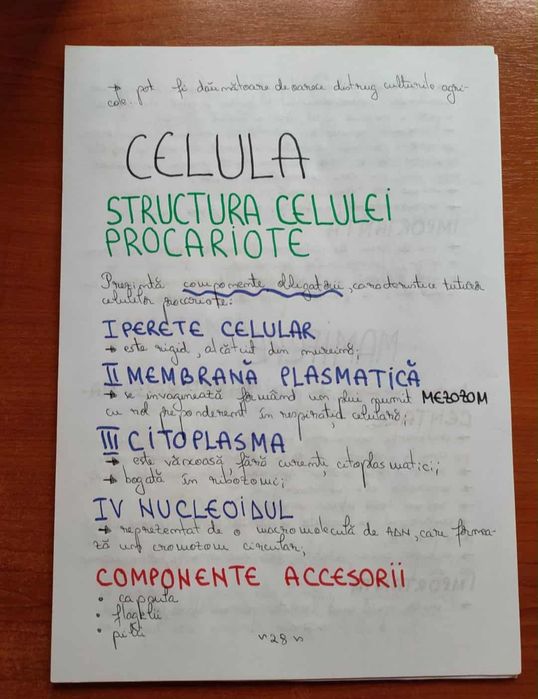 → pot fi dăunătoare deoarece distrug culturile agri-
cole.
CELULA
STRUCTURA CELULEI
PROCARIOTE
Prezintă componente obligatorii, caracteristice tuturor
celulelor procariote:
I PERETE CELULAR
→ este rigid, alcătuit din mureină;
II MEMBRANĂ PLASMATICĂ
→ se invaginează formând un pliu numit MEZOZOM
cu rol preponderent în respirația celulară;
III CITOPLASMA
→ este vâscoasă, fără curenți citoplasmatici;
→ bogată în ribozomi;
IV NUCLEOIDUL
→ reprezentat de o macromoleculă de ADN, care formea-
ză un cromozom circular;
COMPONENTE ACCESORII
• capsula
• flagelii
• pilii
~28~